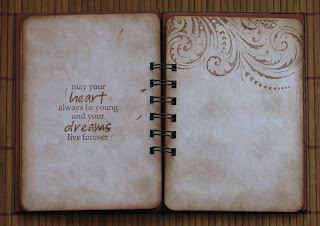 may your
heart
always be young
and your
dreams
live forever